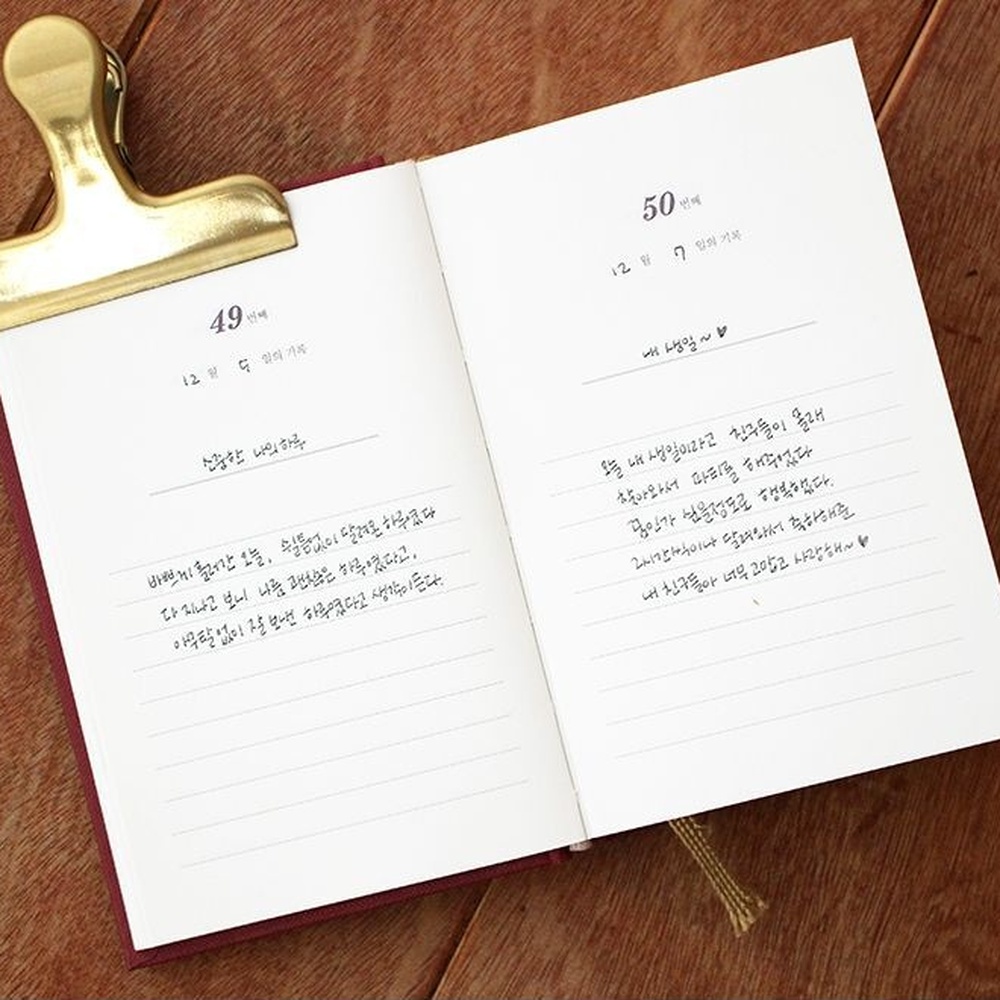 49 번째
12 월 5 일의 기록
소중한 나의하루
바쁘게 흘러간 오늘, 쉴틈없이 달려온 하루였다
다 지나고 보니 나름 괜찮은 하루였다고,
아무탈 없이 잘 보낸 하루였다고 생각이든다.
50 번째
12 월 7 일의 기록
내 생일~♥
오늘 내 생일이라고 친구들이 몰래
찾아와서 파티를 해주었다
꿈인가 싶을정도로 행복했다.
2시간씩이나 달려와서 축하해준
내 친구들아 너무 고맙고 사랑해~♥